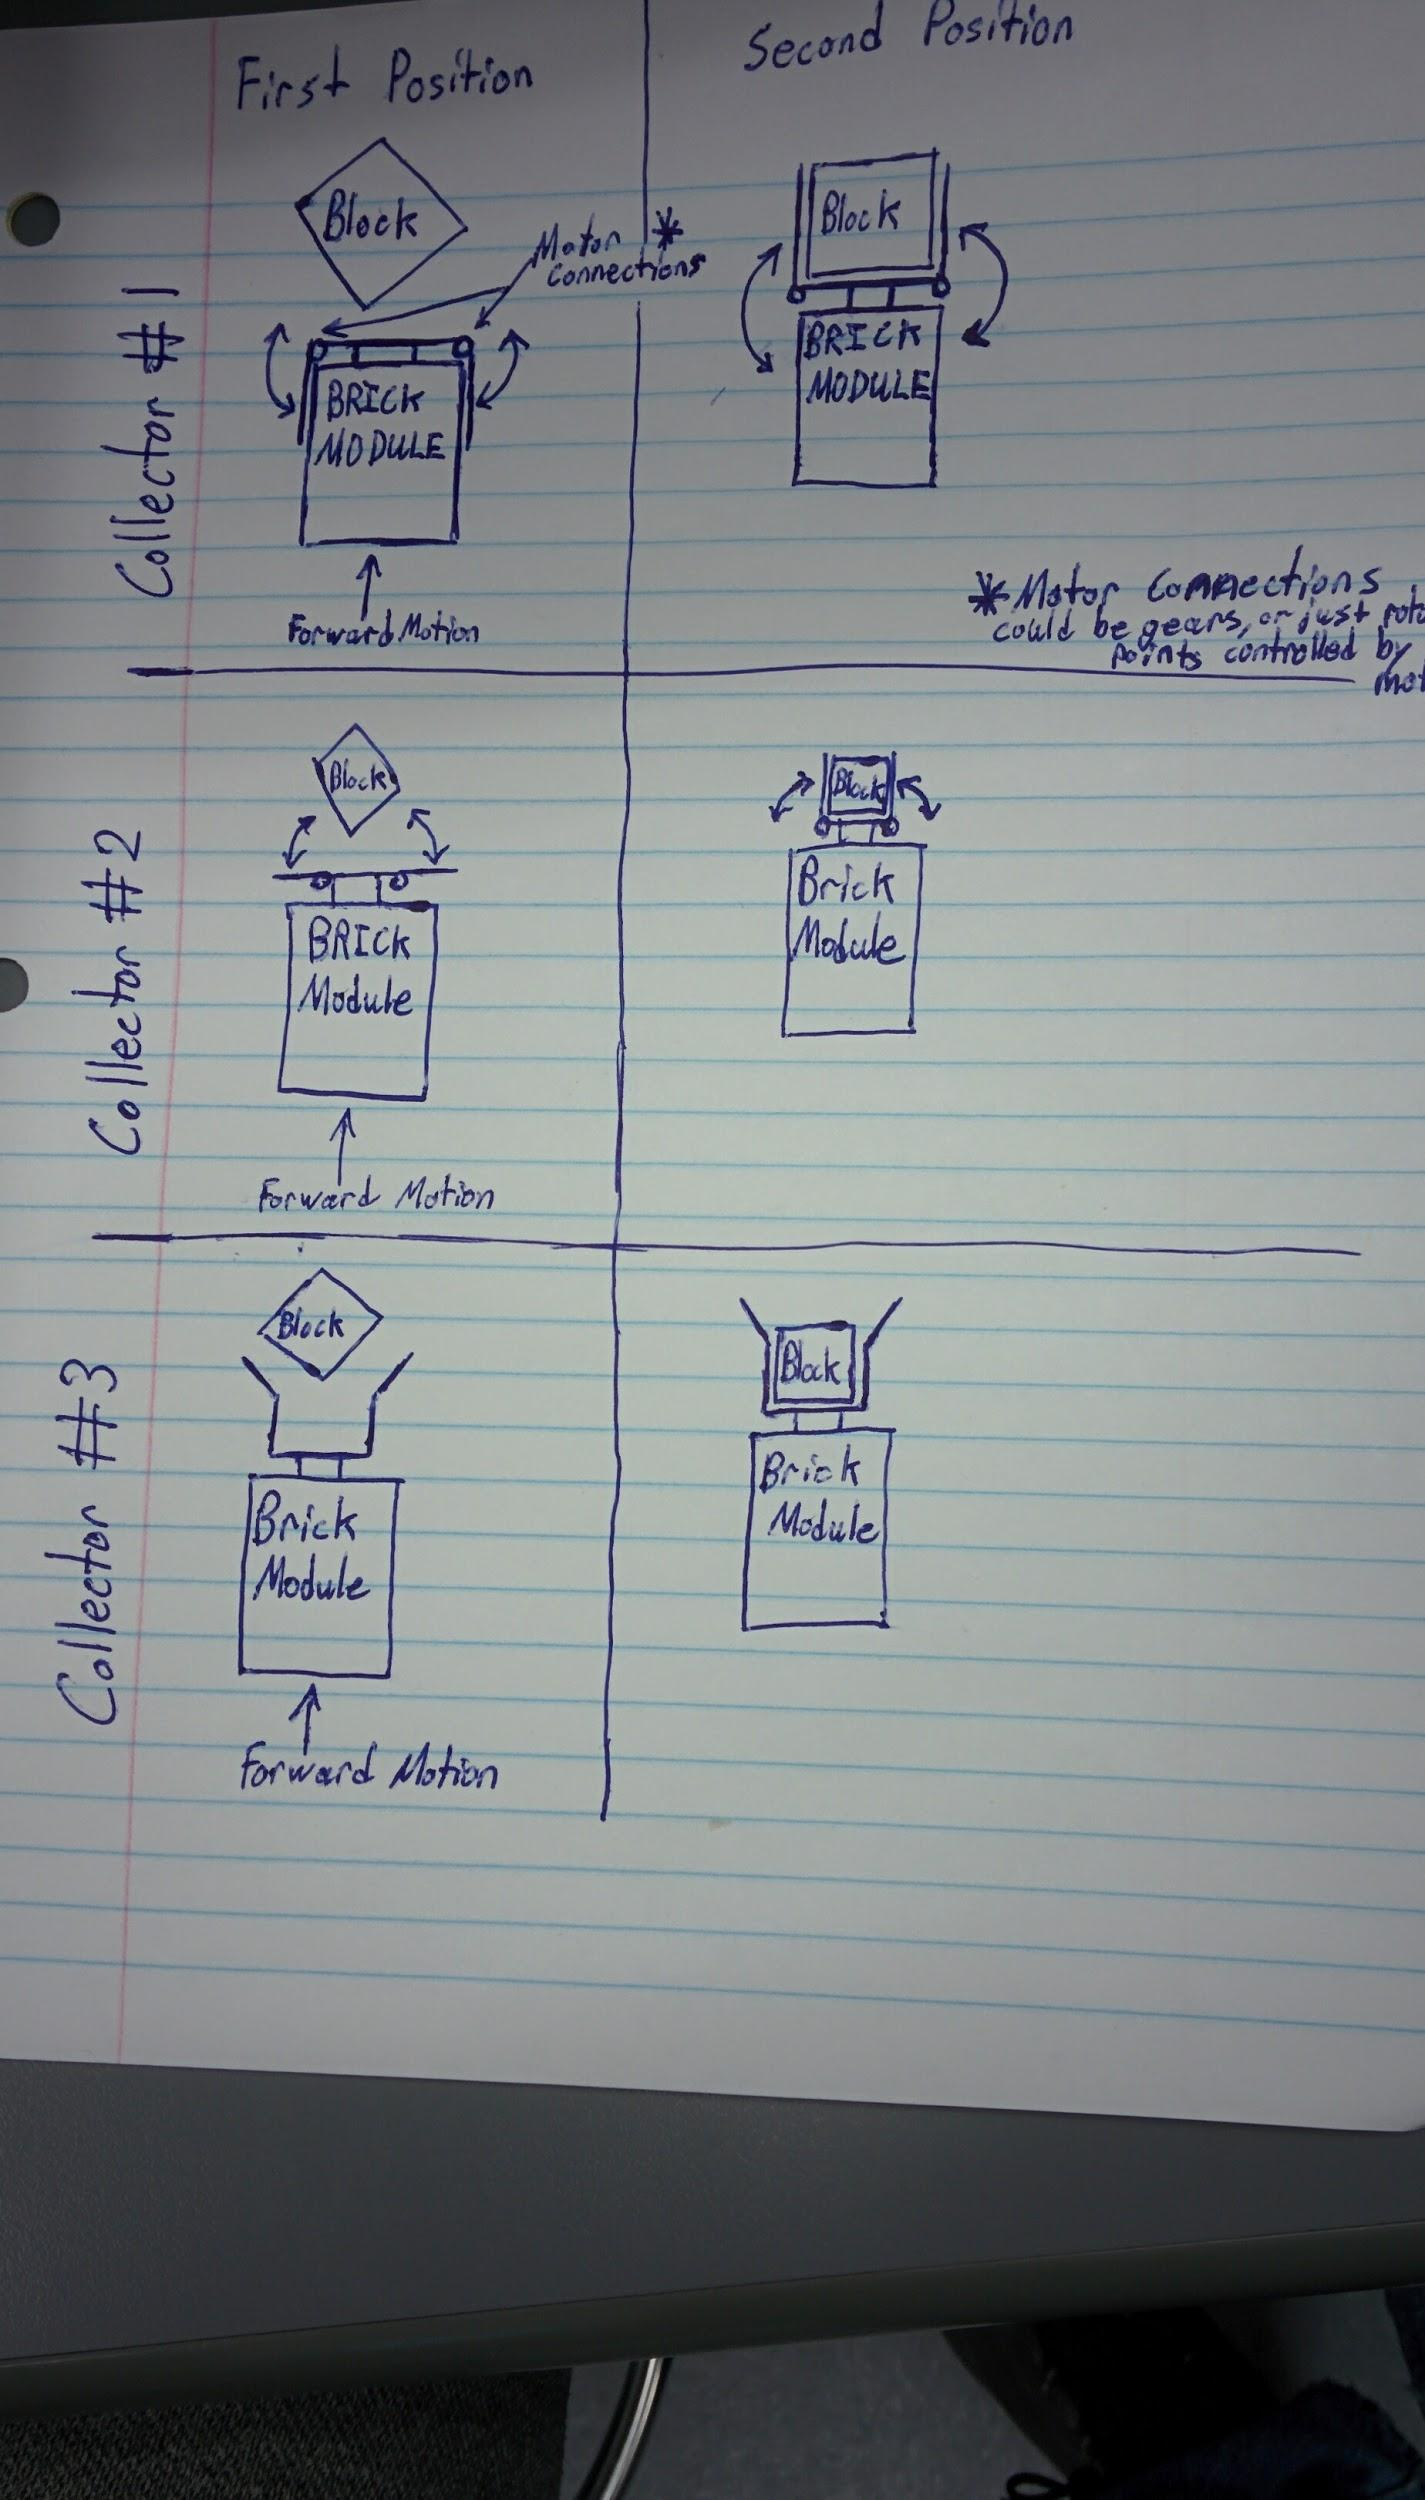 First Position
Second Position
Collector #1
Block
Motor *
connections
BRICK
MODULE
Forward Motion
Block
BRICK
MODULE
* Motor Connections
could be gears, or just
points controlled by
Collector #2
Block
BRICK
Module
Forward Motion
Block
Brick
Module
Collector #3
Block
Brick
Module
Forward Motion
Block
Brick
Module